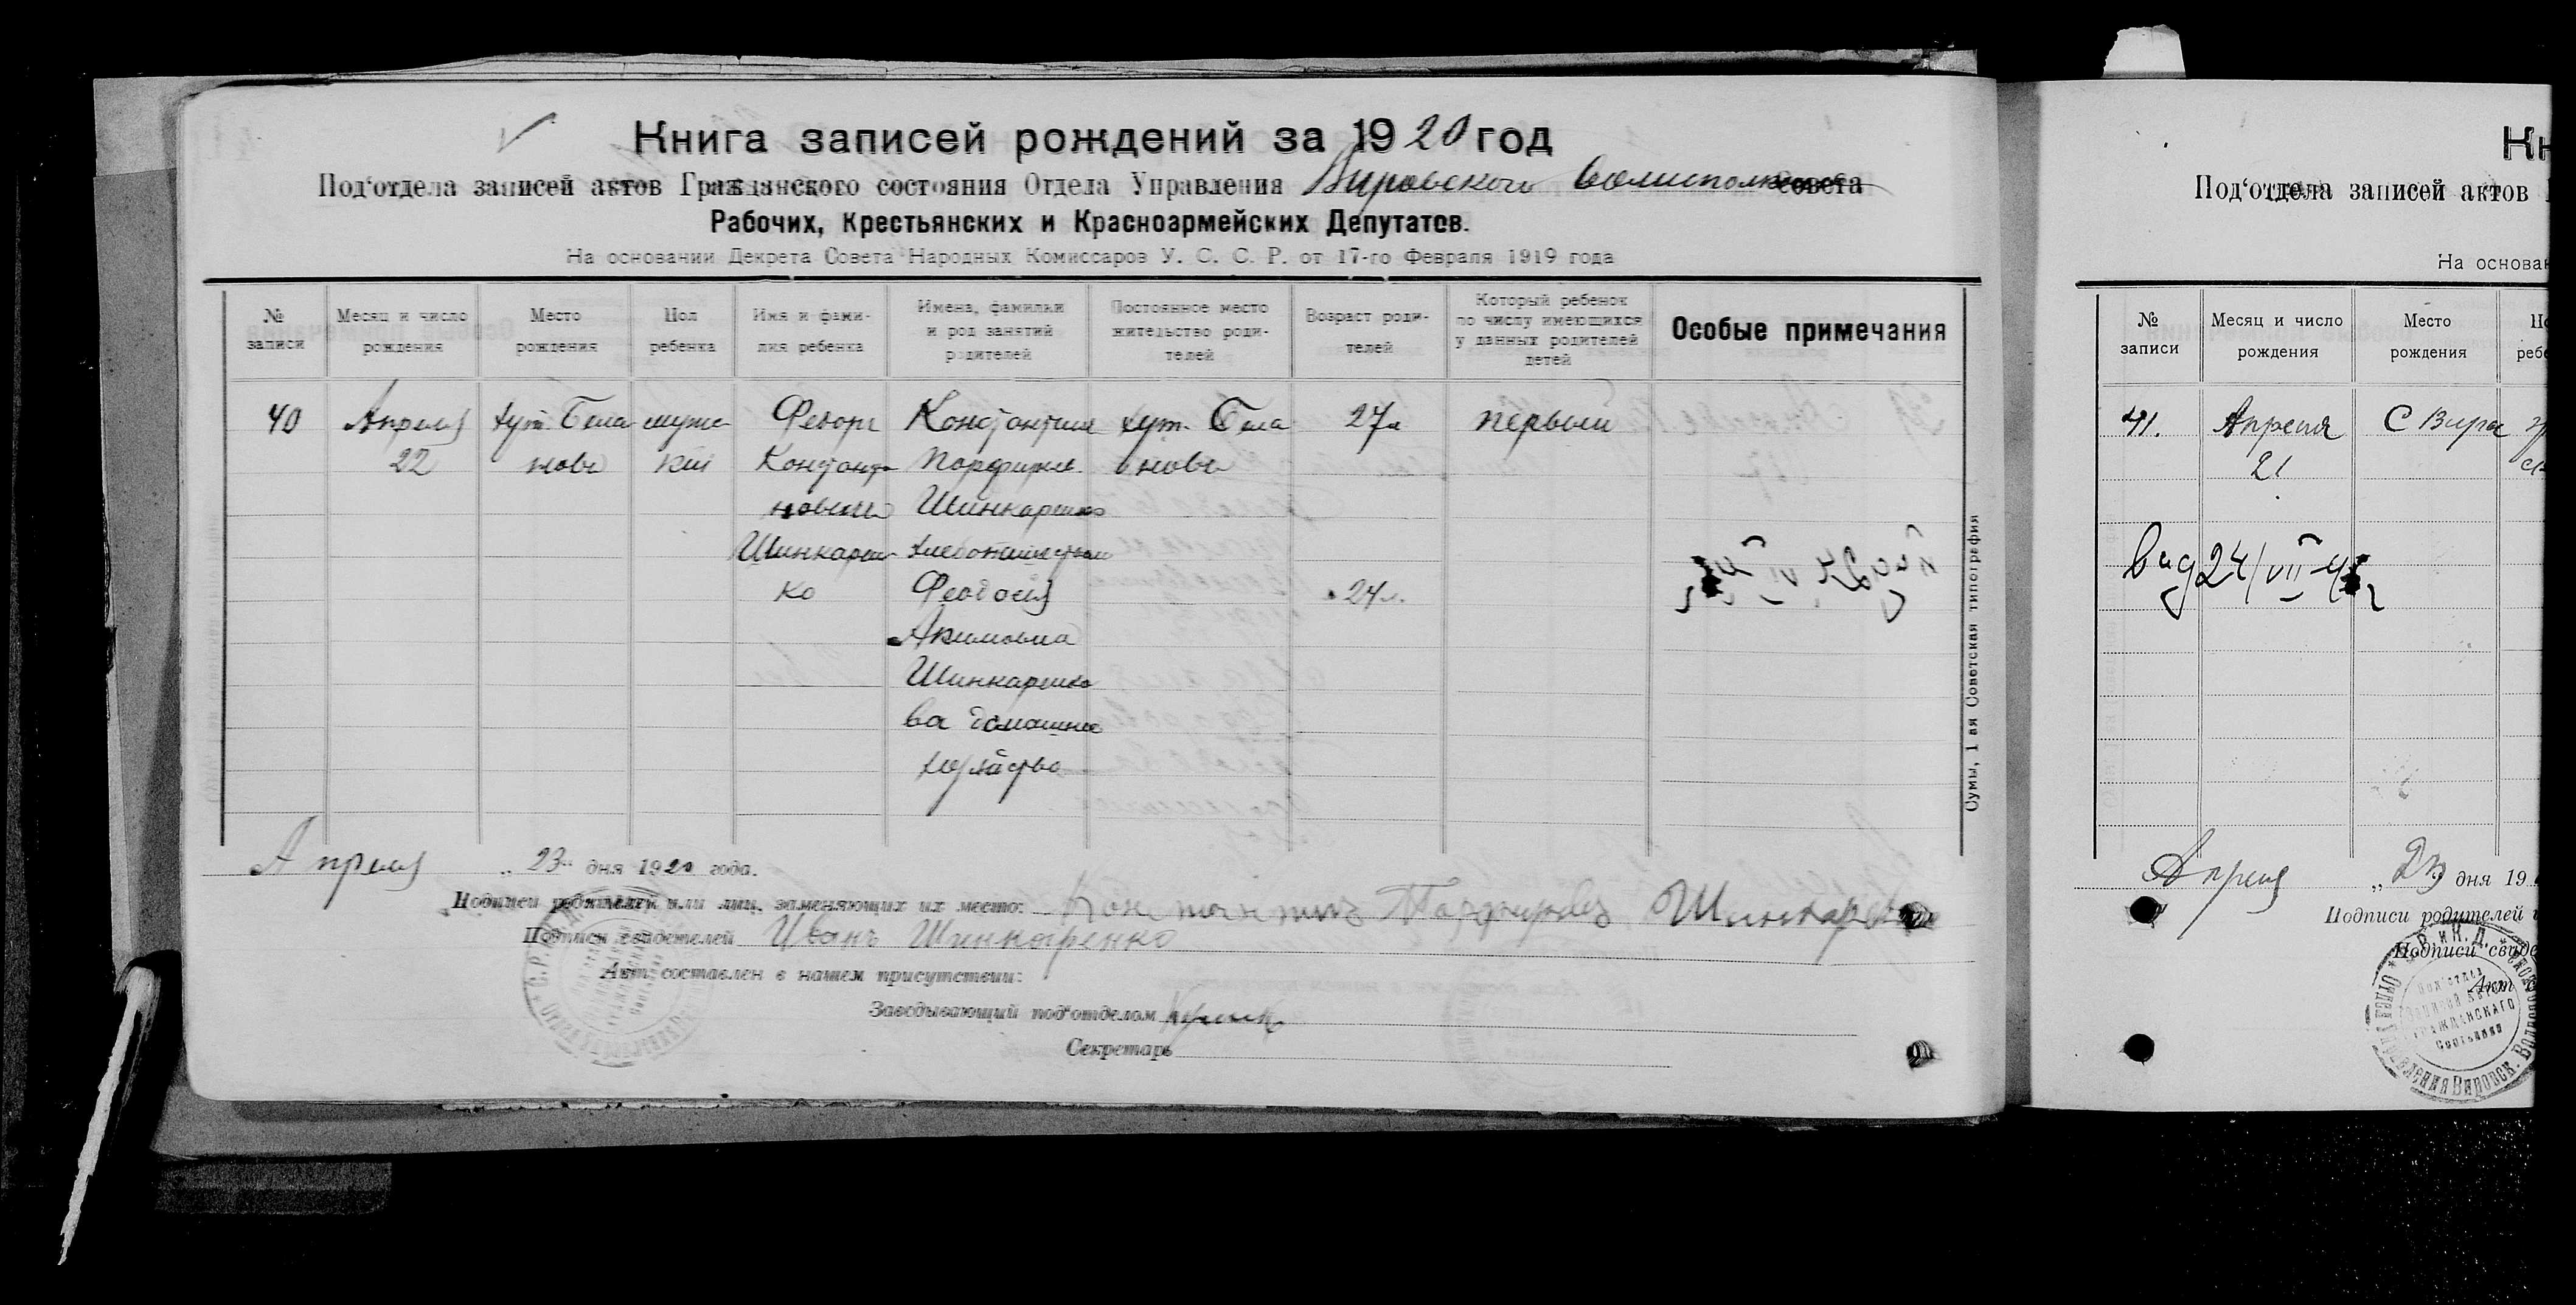 Книга записей рождений за 1920 год
Под'отдела записей актов Гражданского состояния Отдела Управления Вировского Волисполкома совета
Рабочих, Крестьянских и Красноармейских Депутатов.
На основании Декрета Совета Народных Комиссаров У. С. С. Р. от 17-го Февраля 1919 года
№ записи
Месяц и число рождения
Место рождения
Пол ребенка
Имя и фамилия ребенка
Имена, фамилии и род занятий родителей
Постоянное место жительство родителей
Возраст родителей
Который ребенок по числу имеющихся у данных родителей детей
Особые примечания
40
Апреля
22
хут. Била
нове
мужс
кий
Константи
Шинкарен
ко
Константин
Порфирьев.
Шинкаренко
Феодосия
Акимовна
Шинкаренко
ва домашнее
хозяйство
хут. Била
нове
27л
24л.
первый
Апреля „ 23 „ дня 1920 года.
Подписи родителей или лиц, заменяющих их место: Константин Порфирович Шинкаренко
Подписи свидетелей Иванъ Шинкаренко
Акт составлен в нашем присутствии:
Заведывающий под'отделом
Секретарь
Сумы, 1 ая Советская типография
Кн
Под'отдела записей актов
На основан
№ записи
Месяц и число рождения
Место рождения
41.
Апреля
21
С Виры
вид 24/VII
Апреля „ 23 „ дня 19
Подписи родителей
Подписи свиде
Акт